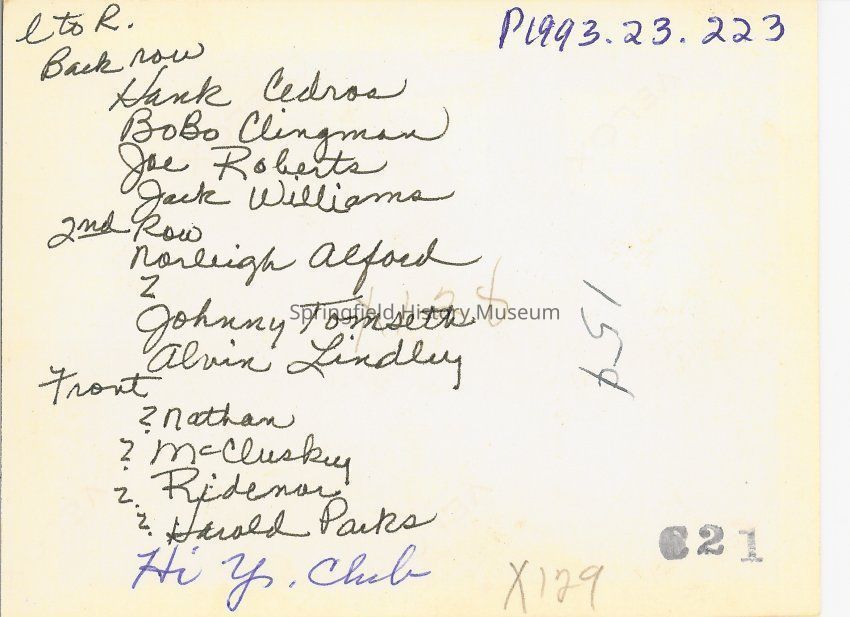 L to R.
P1993.23.223
Back row
Hank Cedros
BoBo Clingman
Joe Roberts
Jack Williams
2nd Row
Norleigh Alford
?
Johnny Tomseth
Alvin Lindley
Front
? Nathan
? McCluskey
? Ridenor
? Harold Parks
Hi Y. Club
Springfield History Museum
p 51
621
X129